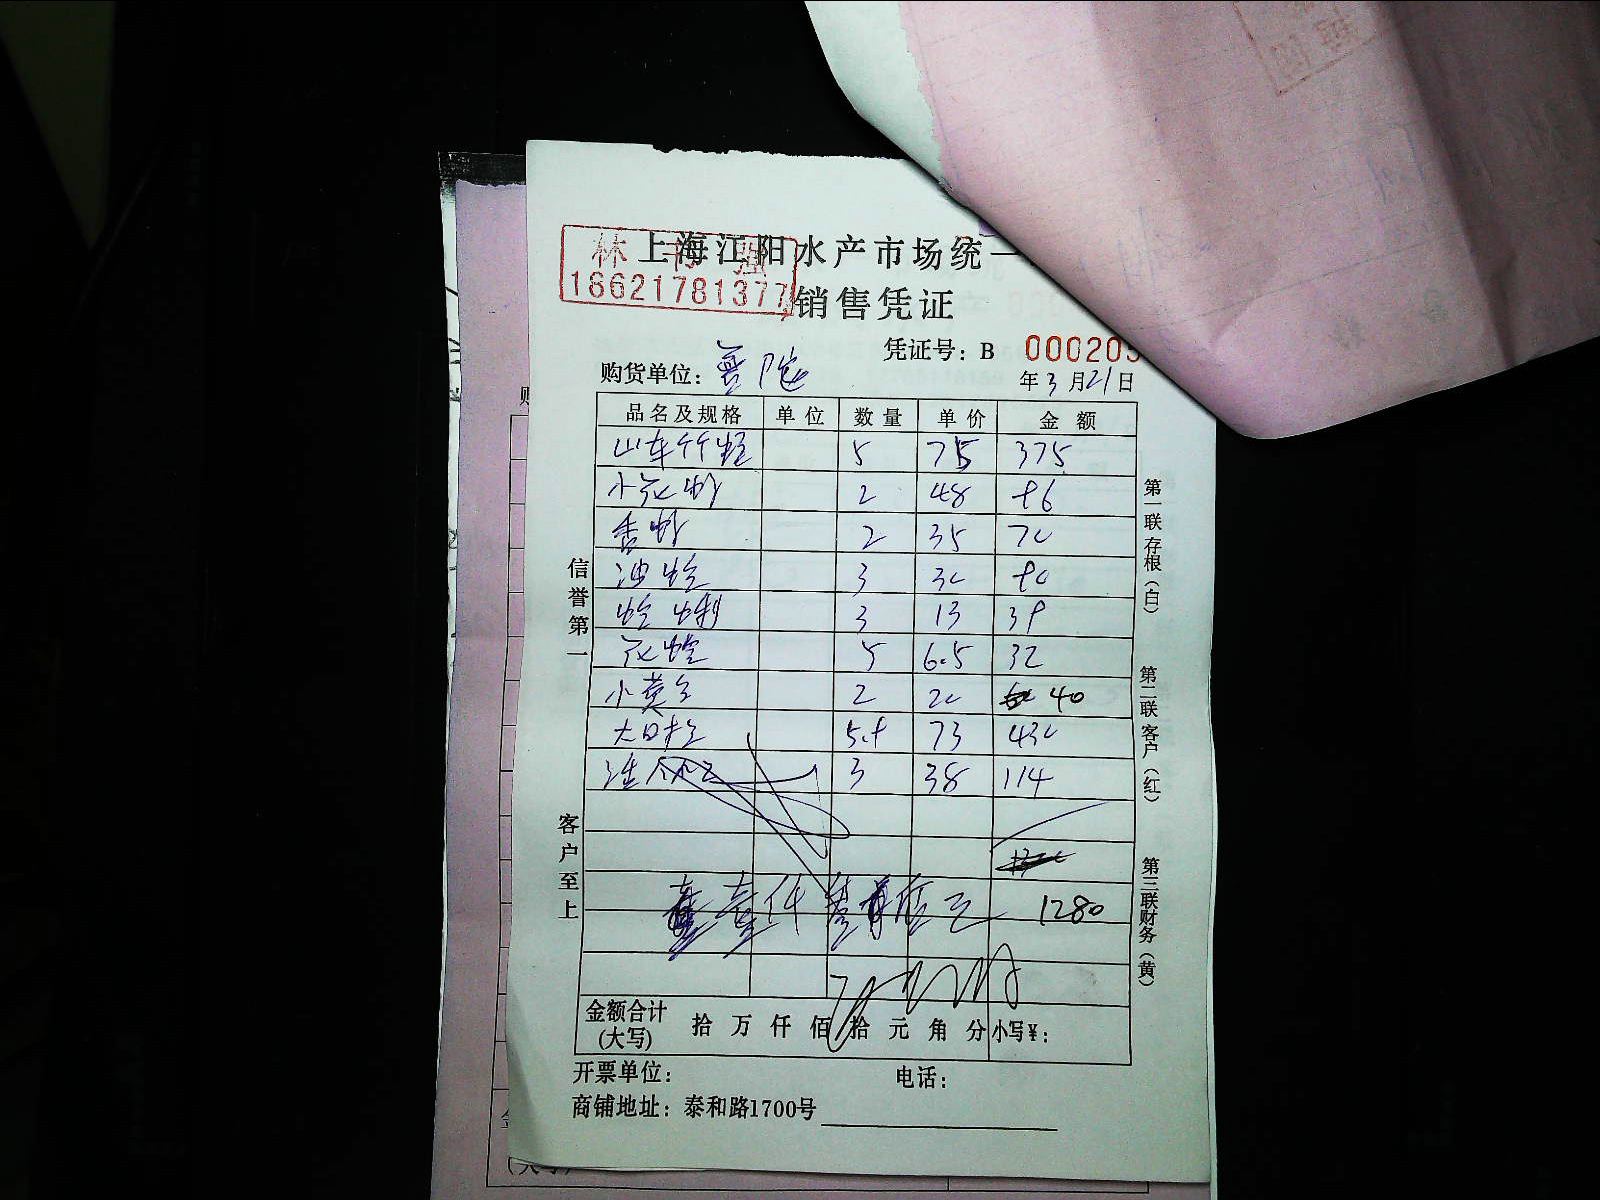 林 书 强
18621781377
上海江阳水产市场统一
销售凭证
凭证号：B 000205
购货单位：普陀
年 3 月 21 日
品名及规格 单位 数量 单价 金额
山东竹蛏 5 75 375
小花蚶 2 48 96
香螺 2 35 70
油蛤 3 30 90
蛤蜊 3 13 39
花蛤 5 6.5 32
小黄鱼 2 20 40
5.9 73 430
3 38 114
1280
金额合计(大写) 拾 万 仟 佰 拾 元 角 分 小写¥：
开票单位： 电话：
商铺地址：泰和路1700号
信誉第一
客户至上
第一联 存根（白）
第二联 客户（红）
第三联 财务（黄）